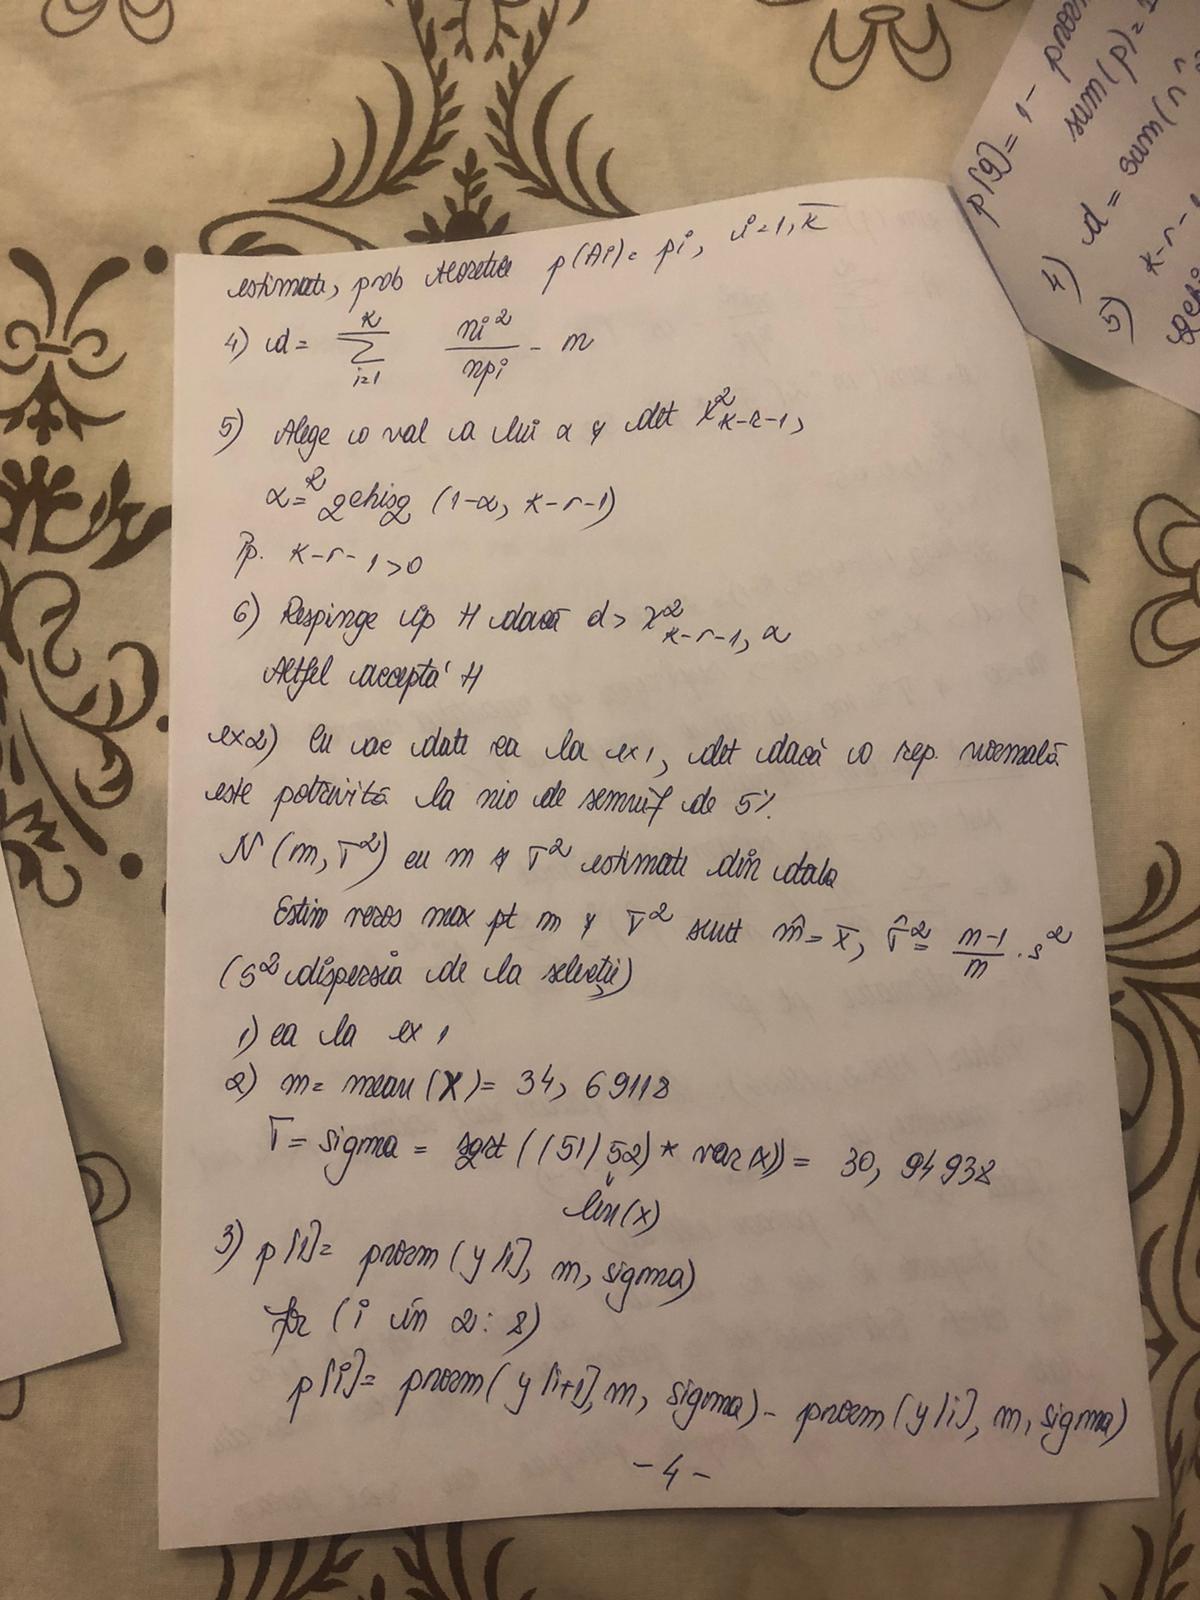 estimate, prob teoretice p(Ai) = pi, i=1,k̅
4) d = Σ_{i=1}^{k} ni²/npi - n
5) Alege o val a lui α și det χ²_{k-r-1},
α =² qchisq (1-α, k-r-1)
Pp. k-r-1>0
6) Respinge ip H dacă d > χ²_{k-r-1, α}
Altfel acceptă H
ex2) Cu ac date ca la ex1, det dacă o rep. normală
este potrivită la niv de semnif de 5%
N (m, σ²) cu m și σ² estimate din date
Estim veros max pt m și σ² sunt m̂ = x̅, σ̂² = n-1/n · s²
(s² dispersia de la selecție)
1) ca la ex 1
2) m = mean (X) = 34, 69118
σ = sigma = sqrt ((51/52) * var(x)) = 30, 94938
len(x)
3) p[1] = pnorm (y[1], m, sigma)
for (i in 2:8)
p[i] = pnorm (y[i+1], m, sigma) - pnorm (y[i], m, sigma)
- 4 -
p[9] = 1 -
sum(p) =
4) d = sum(n
5) k-r-1